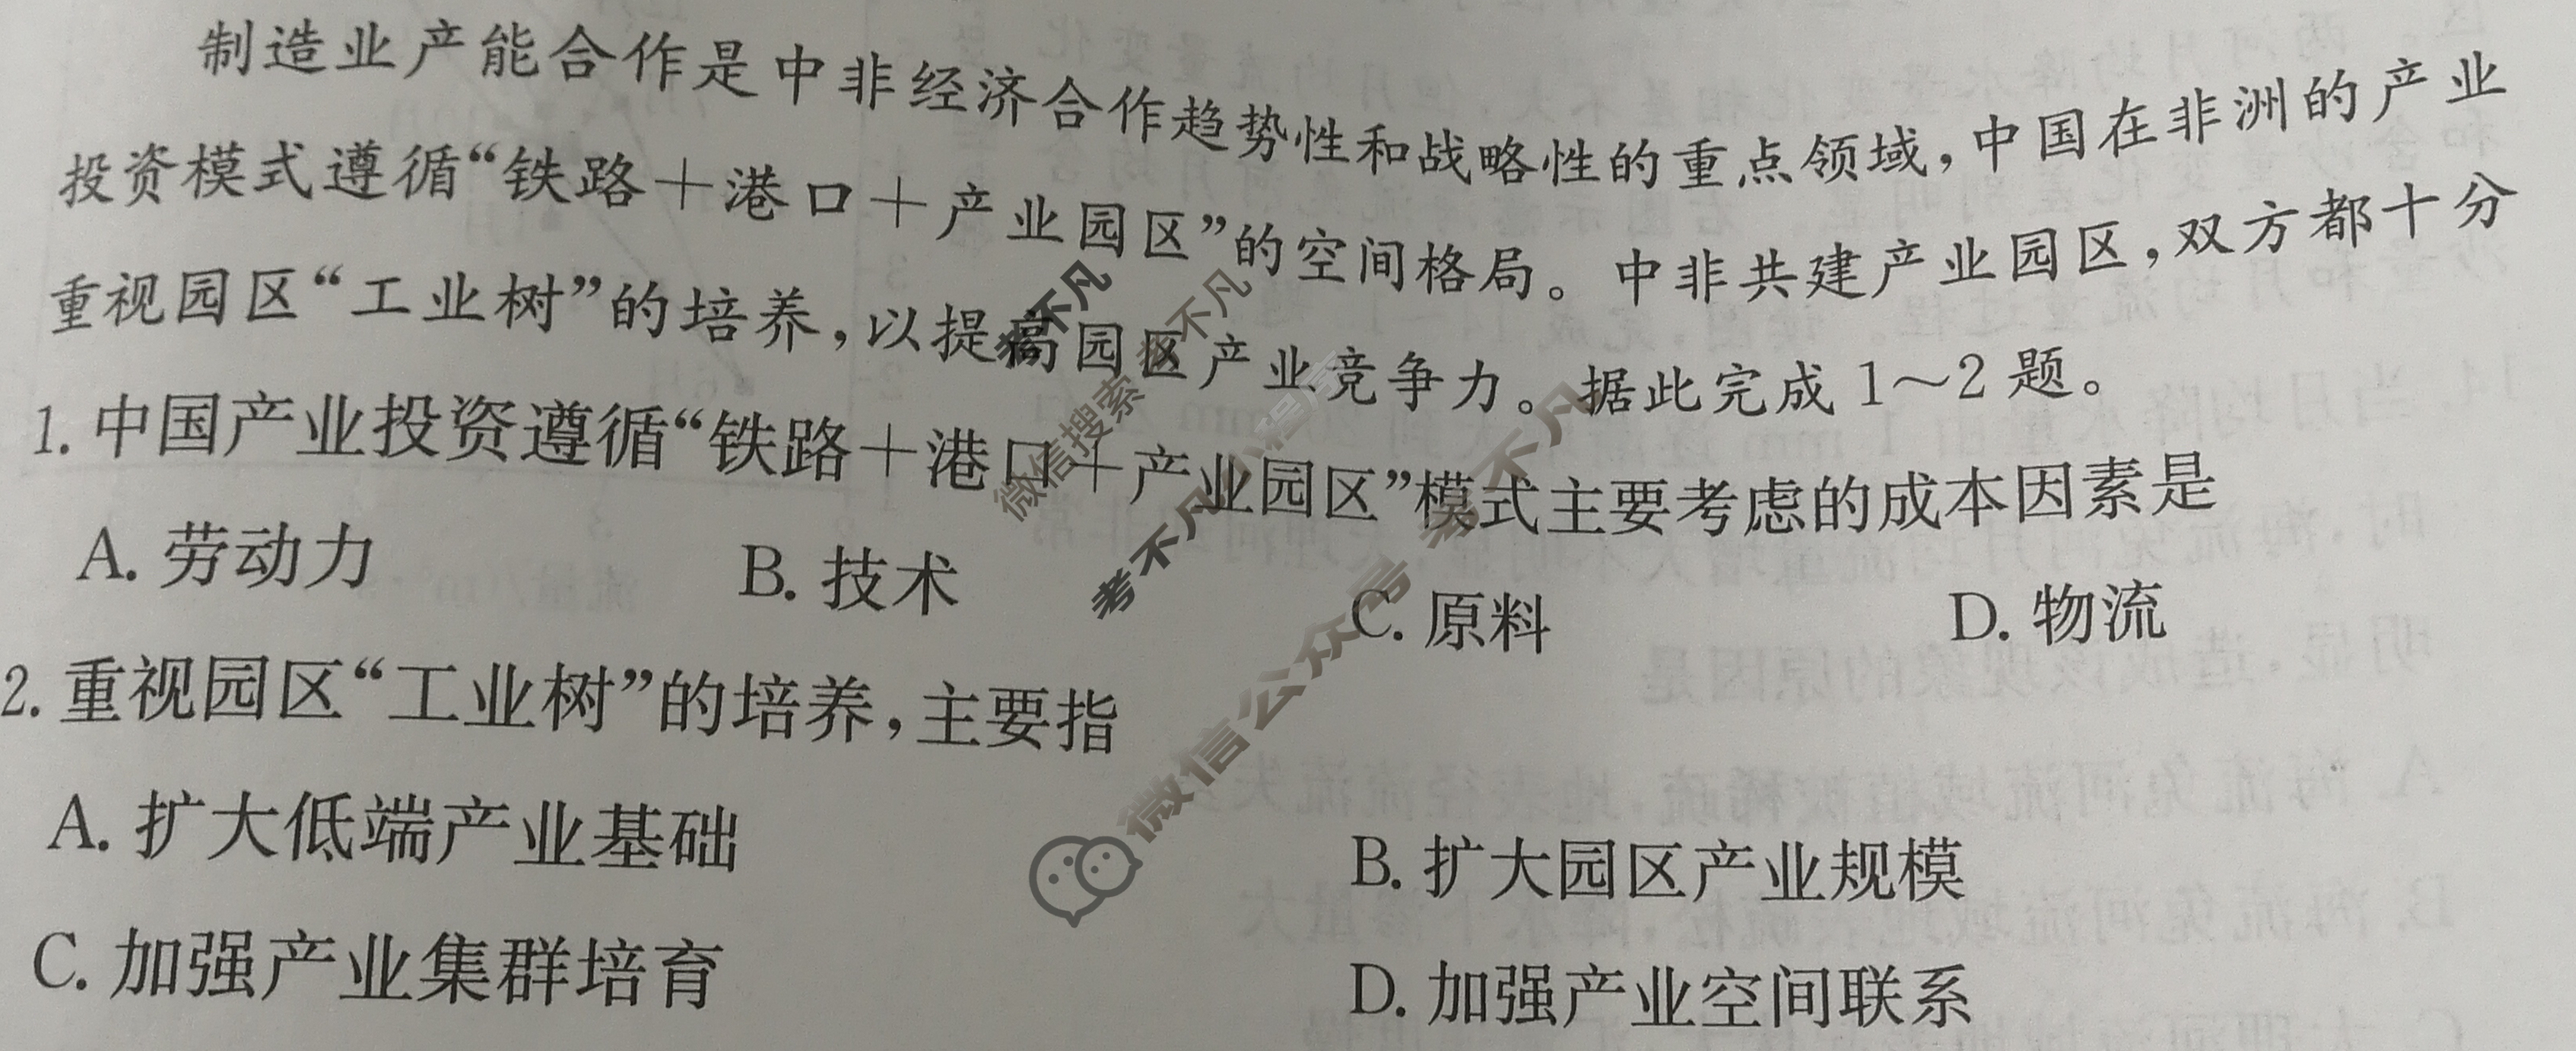 制造业产能合作是中非经济合作趋势性和战略性的重点领域,中国在非洲的产业
投资模式遵循“铁路+港口+产业园区”的空间格局。中非共建产业园区,双方都十分
重视园区“工业树”的培养,以提高园区产业竞争力。据此完成1~2题。
1.中国产业投资遵循“铁路+港口+产业园区”模式主要考虑的成本因素是
A.劳动力 B.技术 C.原料 D.物流
2.重视园区“工业树”的培养,主要指
A.扩大低端产业基础 B.扩大园区产业规模
C.加强产业集群培育 D.加强产业空间联系
微信搜索 考不凡
考不凡小程序
微信公众号 考不凡